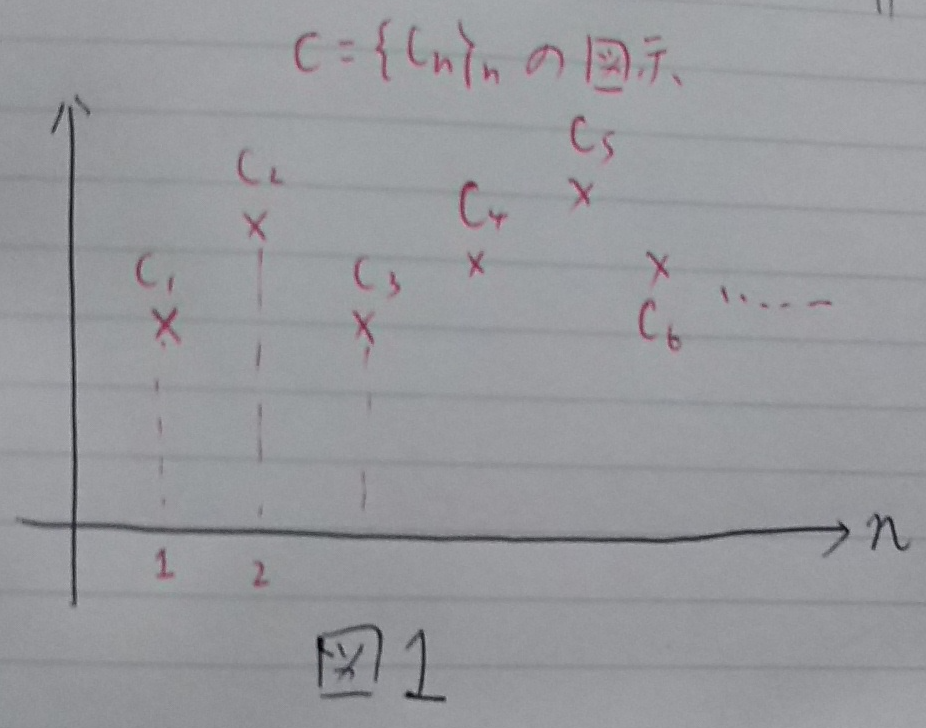 C={Cn}n の図示
C5
C2
C4
C1
C3
C6 ......
n
1 2
図1